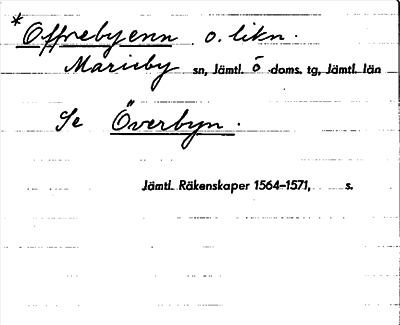 * Offrebyenn o. likn.
Marieby sn, Jämtl. Ö doms. tg, Jämtl. län
Se Överbyn.
Jämtl. Räkenskaper 1564–1571, s.